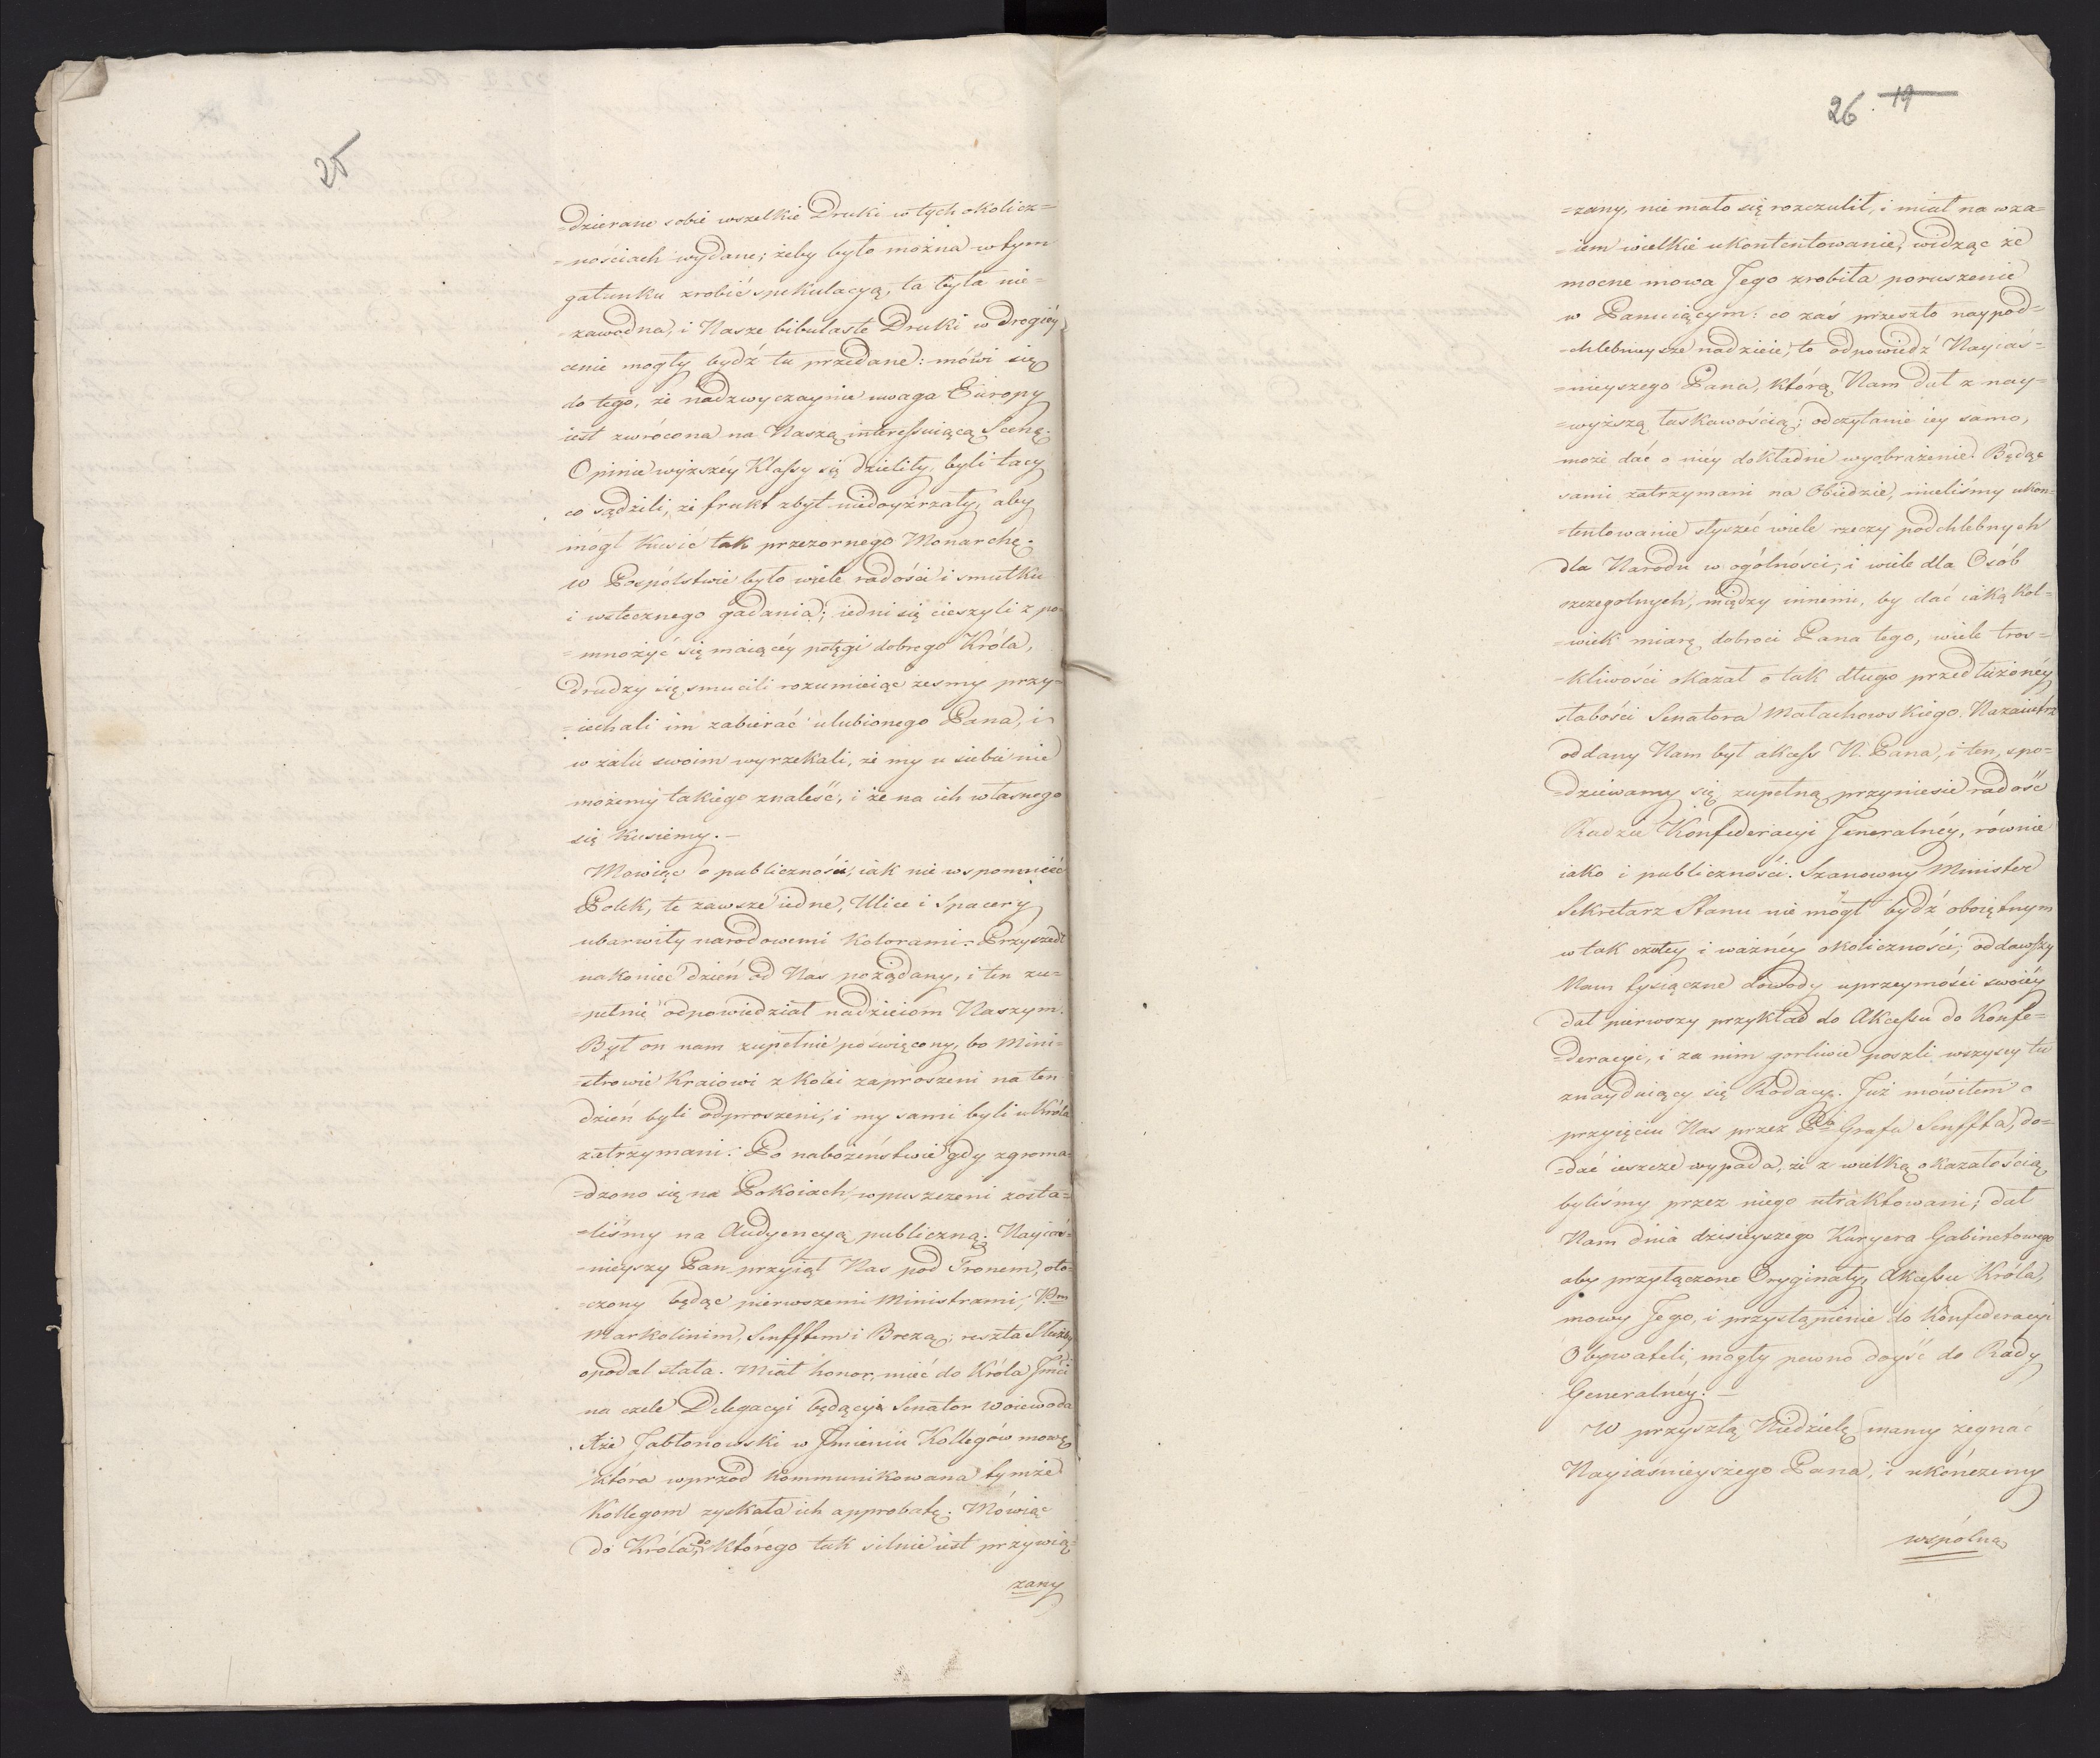 25
dzierane sobie wszelkie Druki w tych okolicz=
=nościach wydane; żeby było można w tym
gatunku zrobić spekulacyą, ta była nie=
zawodna, i Nasze bibulaste Druki w drogiéy
cenie mogły bydź tu przedane: mówi się
do tego, że nadzwyczaynie uwaga Europy
iest zwrócona na Naszą interessuiącą Scenę.
Opinie wyższéy Klassy się dzieliły, byli tacy
co sądzili, że frukt zbyt niedoyźrzały, aby
mógł kusić tak przezornego Monarchę.
W Pospólstwie było wiele radości i smutku
i wstecznego gadania; iedni się cieszyli z po=
=mnożyć się maiącéy potęgi dobrego Króla,
drudzy się smucili rozumieiąc żesmy przy=
=iechali im zabierać ulubionego Pana, i
w żalu swoim wyrzekali, że my u siebie nie
możemy takiego znaleść, i że na ich własnego
się kusiemy. —
Mowiąc o publiczności, iak nie wspomnieć
Polek, te zawsze iedne, Ulice i Spacery
ubarwiły narodowemi kolorami. Przyszedł
nakoniec dzień od Nas pożądany, i ten zu=
=pełnie odpowiedział nadzieiom Naszym.
Był on nam zupełnie poświęcony, bo Mini=
=strowie Kraiowi z kolei zaproszeni na ten
dzień byli odproszeni, i my sami byli u Króla
zatrzymani. Po nabożeństwie gdy zgroma=
=dzono się na Pokoiach, wpuszczeni zosta=
=liśmy na Audyencyą publiczną. Nayiaś=
=nieyszy Pan przyiął Nas pod Tronem, oto=
=czony będąc pierwszemi Ministrami, P.m
Markolinim, Senfftem i Brezą; reszta Służby
opodal stała. Miał honor, mieć do Króla Jmci
na czele Delegacyi będący Senator Woiewoda
Xże Jabłonowski w Jmieniu Kollegów mowę
która wprzód kommunikowana tymże
Kollegom zyskała ich approbatę. Mówiąc
do Króla, do którego tak silnie iest przywią=
zany
26 19
=zany, nie mało się rozczulił, i miał na wza=
=iem wielkie ukontentowanie, widząc że
mocne mowa Jego zrobiła poruszenie
w Panuiącym: co zaś przeszło naypod=
=chlebnieysze nadzieie, to odpowiedź Nayiaś=
=nieyszego Pana, którą Nam dał z nay=
=wyższą łaskawością; odczytanie iey samo,
może dać o niéy dokładne wyobrażenie. Będąc
sami zatrzymani na Obiedzie, mieliśmy ukon=
=tentowanie słyszeć wiele rzeczy podchlebnych
dla Narodu w ogólności, i wiele dla Osób
szczegolnych, między innemi, by dać iaką kol=
=wiek miarę dobroci Pana tego, wiele tros=
=kliwości okazał o tak długo przedłużonéy
słabości Senatora Małachowskiego. Nazaiutrz
oddany Nam był akcess N. Pana, i ten, spo=
=dziewamy się zupełną przyniesie radość
Radzie Konfederacyi Jeneralnéy, równie
iako i publiczności. Szanowny Minister
Sekretarz Stanu nie mógł bydź oboiętnym
w tak czułey i ważnéy okoliczności; oddawszy
Nam tysiączne dowody uprzeymości swoiéy
dał pierwszy przykład do Akcessu do Konfe=
=deracyi, i za nim gorliwie poszli wszyscy tu
znayduiący się Rodacy. Już mówiłem o
przyięciu Nas przez Pa Grafa Senffta, do=
=dać ieszcze wypada, że z wielką okazałością
byliśmy przez niego utraktowani; dał
Nam dnia dzisieyszego Kuryera Gabinetowego
aby przyłączone Oryginały, Akcessu Króla,
mowy Jego, i przystąpienie do Konfederacyi
Obywateli, mogły pewno doyść do Rady
Generalnéy. —
W przyszłą Niedzielę mamy żegnać
Nayiaśnieyszego Pana, i ukończemy
wspólną